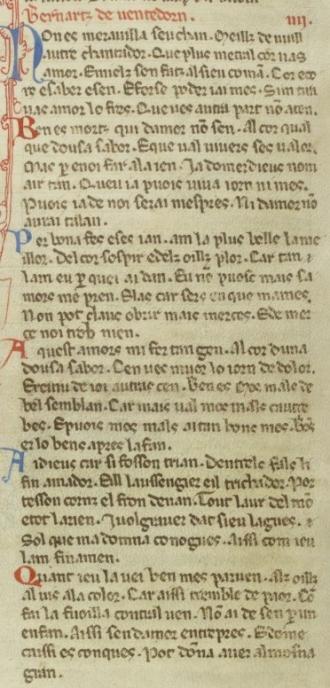 Bernartz de uentedorn. IIII.
Non es merauilla seu chan. Meillz de null
autre chantador. Que plus metral cor uas
amor. E mielz sen fatz al sieu coman. Cor e cors
e saber e sen. E forse poder iai mes. Sim tira
uas amor lo fres. Que ues autra part non aten.
Ben es mortz qui damor non sen. Al cor qual
que dousa sabor. E que ual uiuers ses ualor.
Mas per enoi far ala ien. Ja domerdieus nom
air tan. Queu ia puois uiua iorn ni mes.
Puois ia de noi serai mespres. Ni damor non
aurai talan.
Per bona fee e ses ian. am la plus belle
Del cor sospir e delz oillz plor. Car tan
lam eu per quei ai dan. Eu ne puosc mais sa
mors me pren. E las car ser en que mames.
Non pot claus obrir mais merces. E de mer
ce noi trob nien.
Aquest amors mi fer tan gen. Al cor duna
dousa sabor. Cen ues muor lo iorn de dolor.
E reuiu de ioi autras cen. Ben es mos mals de
bel semblan. Car mais ual mos mals cautre
bes. E puois mos mals aitan bons mes. Bos
er lo bens apres lafan.
Ai dieus car si fosson trian. Dentrels fals li
fin amador. Eill lausengier eil trichador. Por
tesson corns el fron denan. Tout laur del mon
e tot larien. I uolgrauer dat sieu lagues.
Sol que ma domna conogues. Aissi com ieu
lam finamen.
Quant ieu la uei ben mes paruen. Als oillz
al uis ala color. Car aissi tremble de paor. Com
fai la fuoilla contral uen. Non ai de sen per un
enfan. Aissi sen damor entrepres. E dome
caissi es conques. Pot domna auer almosna
gran.